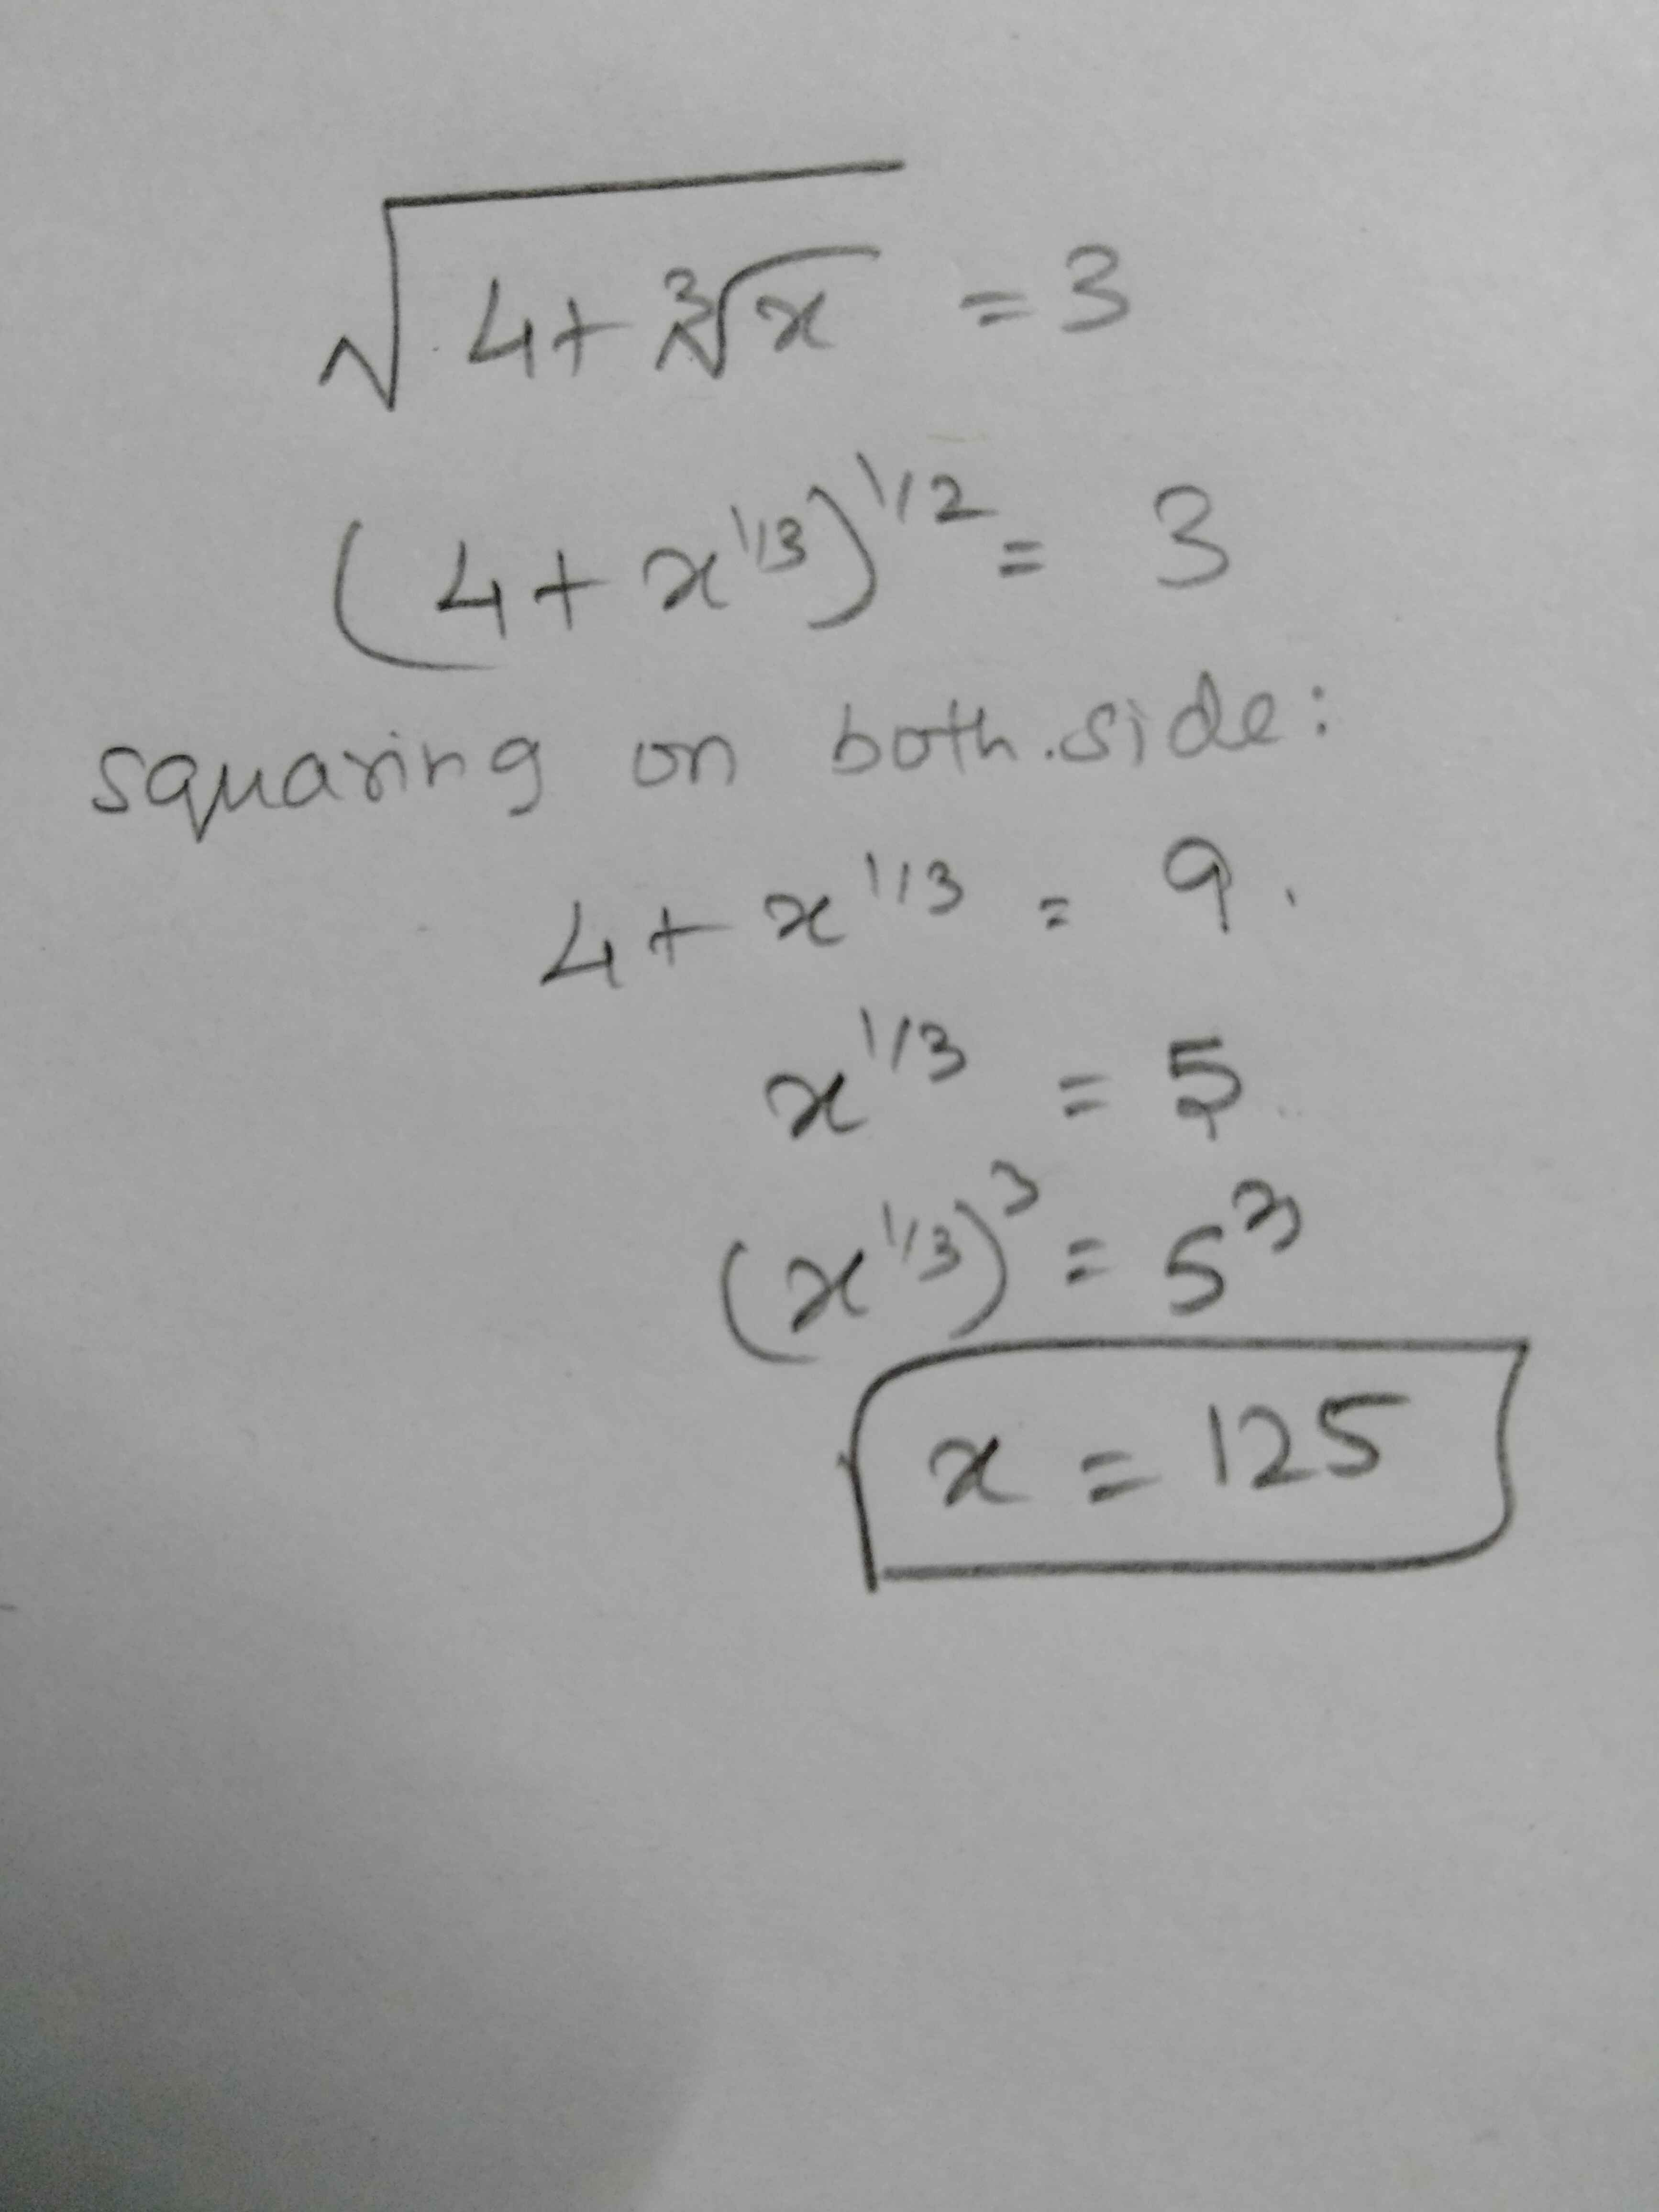 √(4+ ∛x) = 3
(4+ x^1/3)^1/2 = 3
squaring on both side:
4+ x^1/3 = 9.
x^1/3 = 5
(x^1/3)^3 = 5^3
x = 125